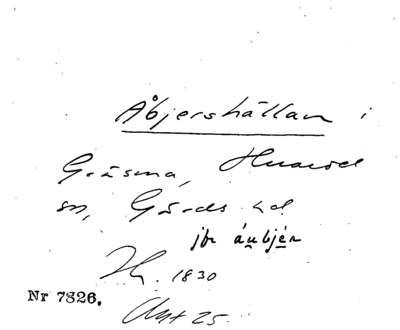 Åbjershällan i
Gräsma, Huaröd
sn, Gärds hd
jfr áubjér
1830
Nr 7826.
Akt 25